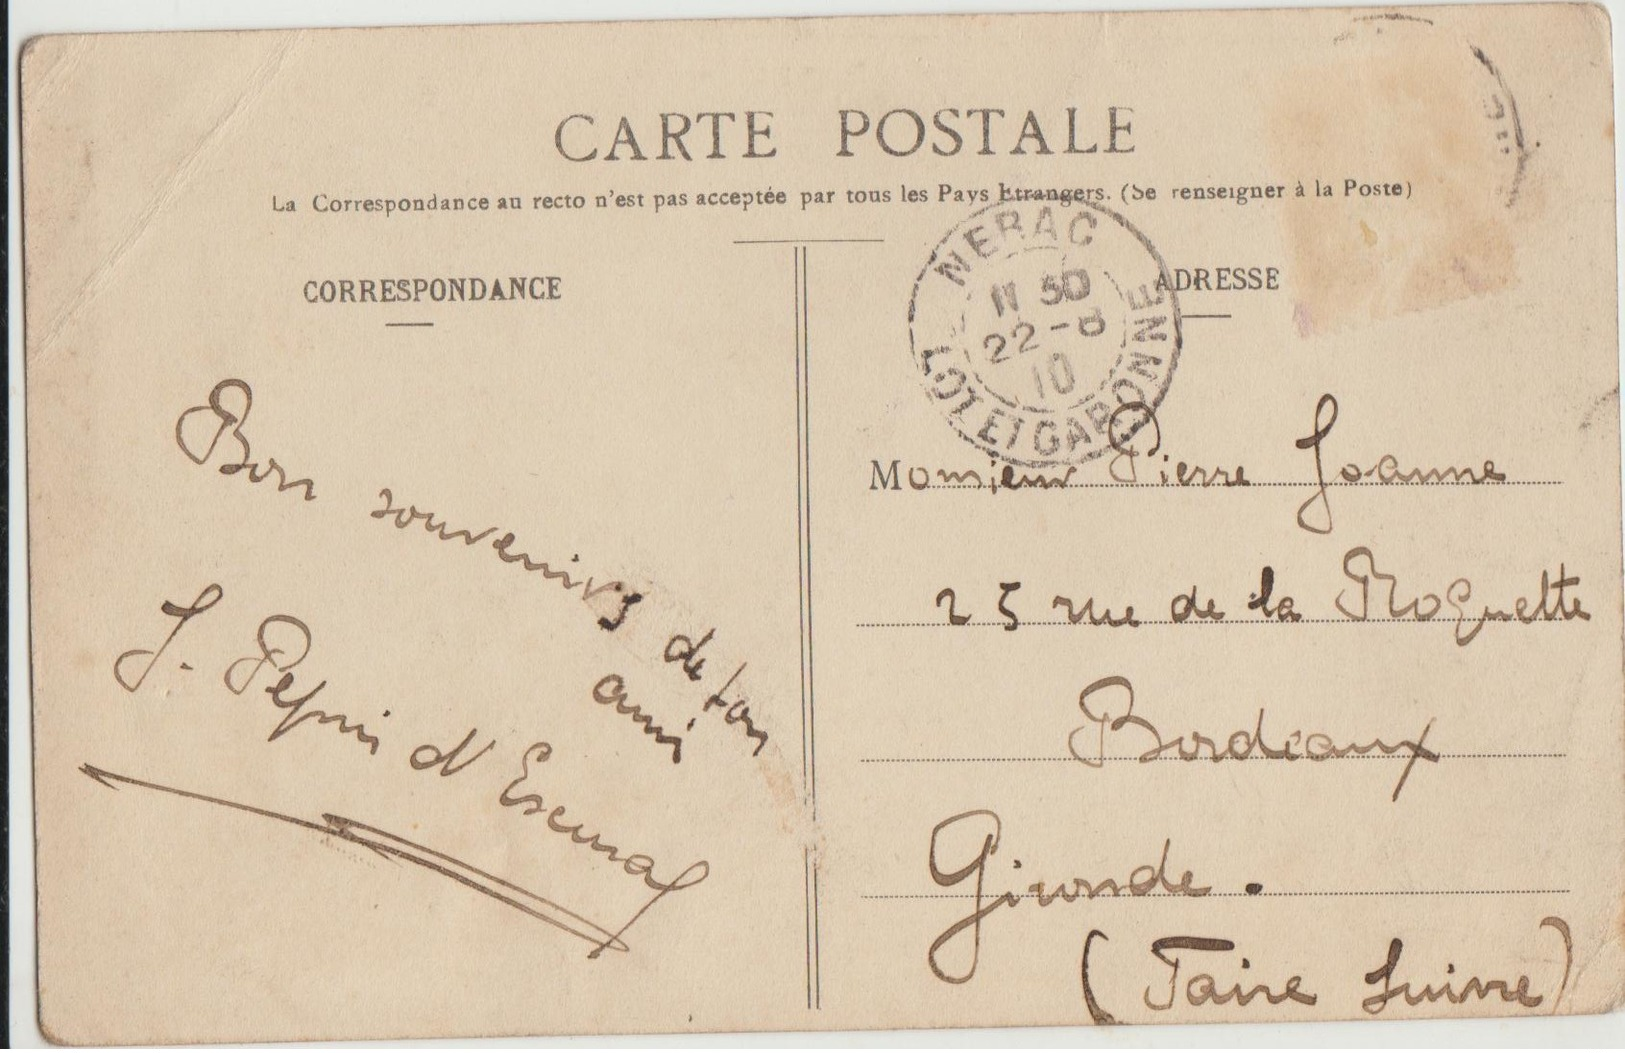 CARTE POSTALE
La Correspondance au recto n'est pas acceptée par tous les Pays Etrangers. (Se renseigner à la Poste)
CORRESPONDANCE
ADRESSE
NERAC
22 - 8
10
LOT ET GARONNE
Bon souvenirs de ton
ami
J. Pepin d'
Monsieur Pierre Joanne
25 rue de la Roquette
Bordeaux
Gironde.
(Faire suivre)